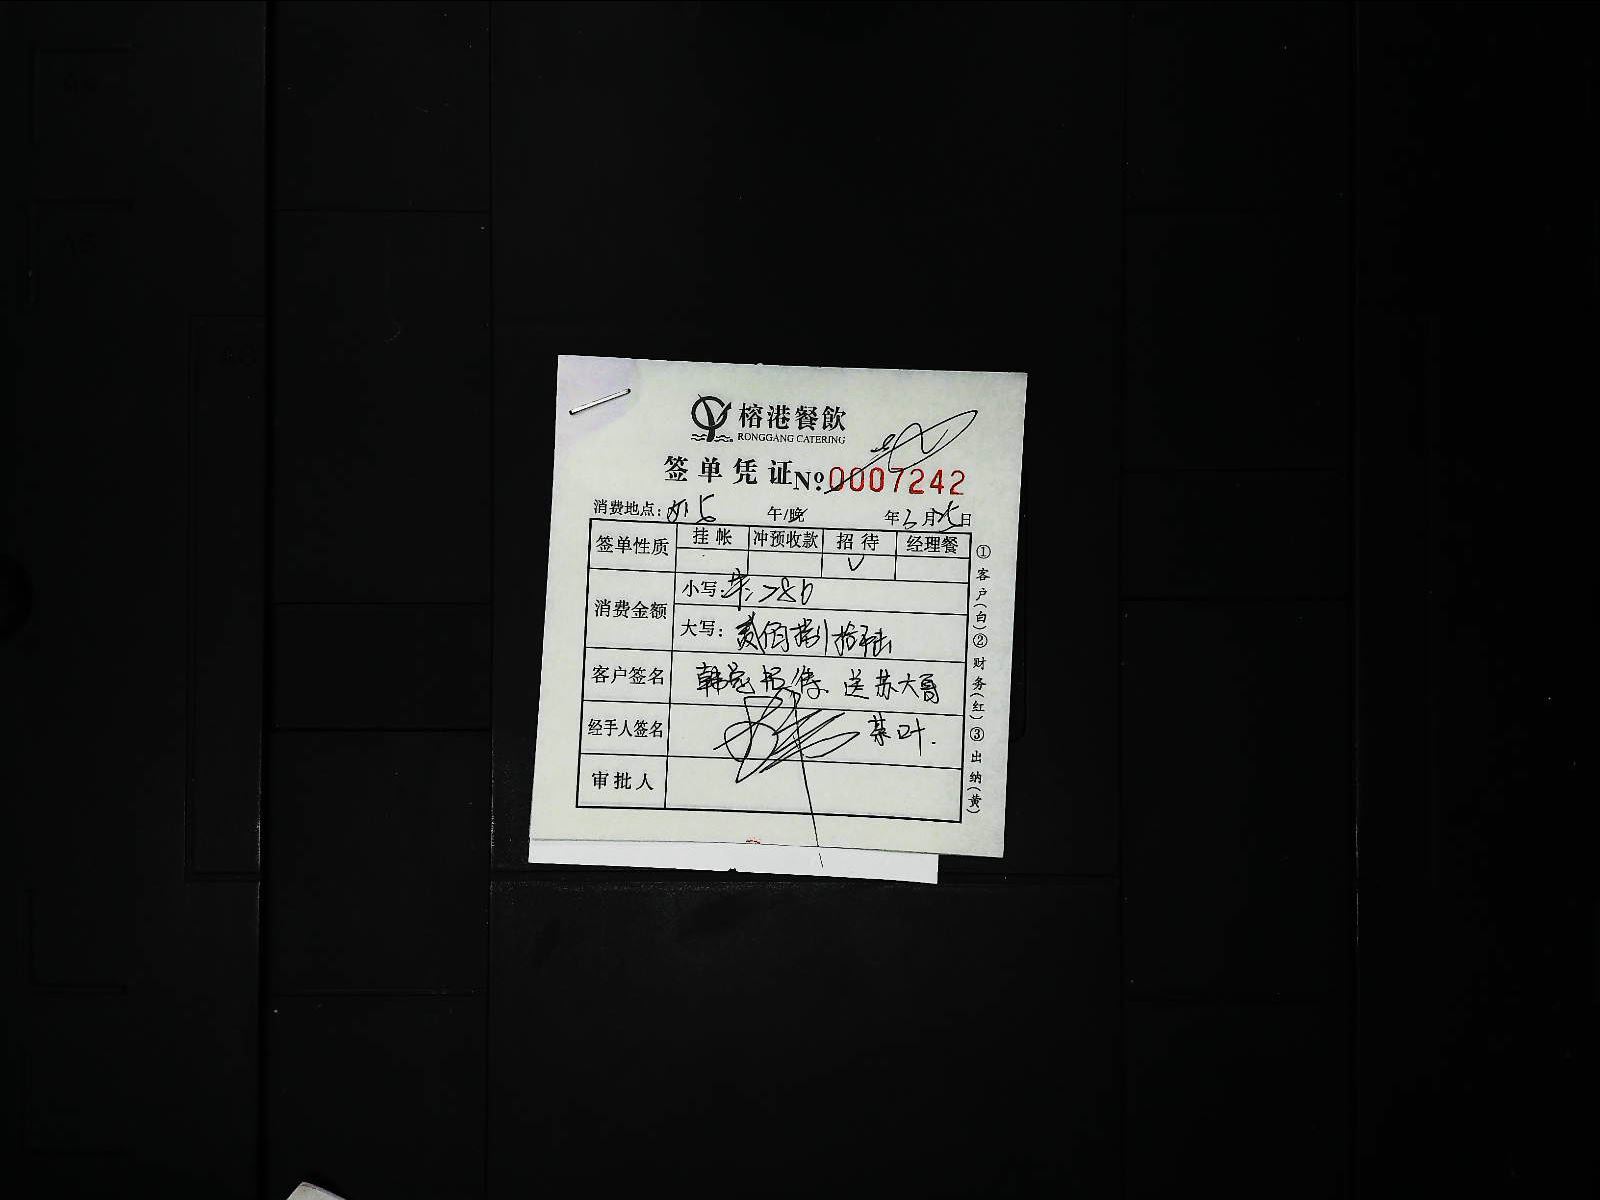 榕港餐飲
RONGGANG CATERING
签单凭证 №0007242
消费地点： 午/晚 年3月25日
签单性质 挂帐 冲预收款 招待 经理餐
√
消费金额 小写：286
大写：贰佰捌拾陆
客户签名 韩总 送苏大哥
经手人签名 茶叶.
审批人
①客户(白)②财务(红)③出纳(黄)